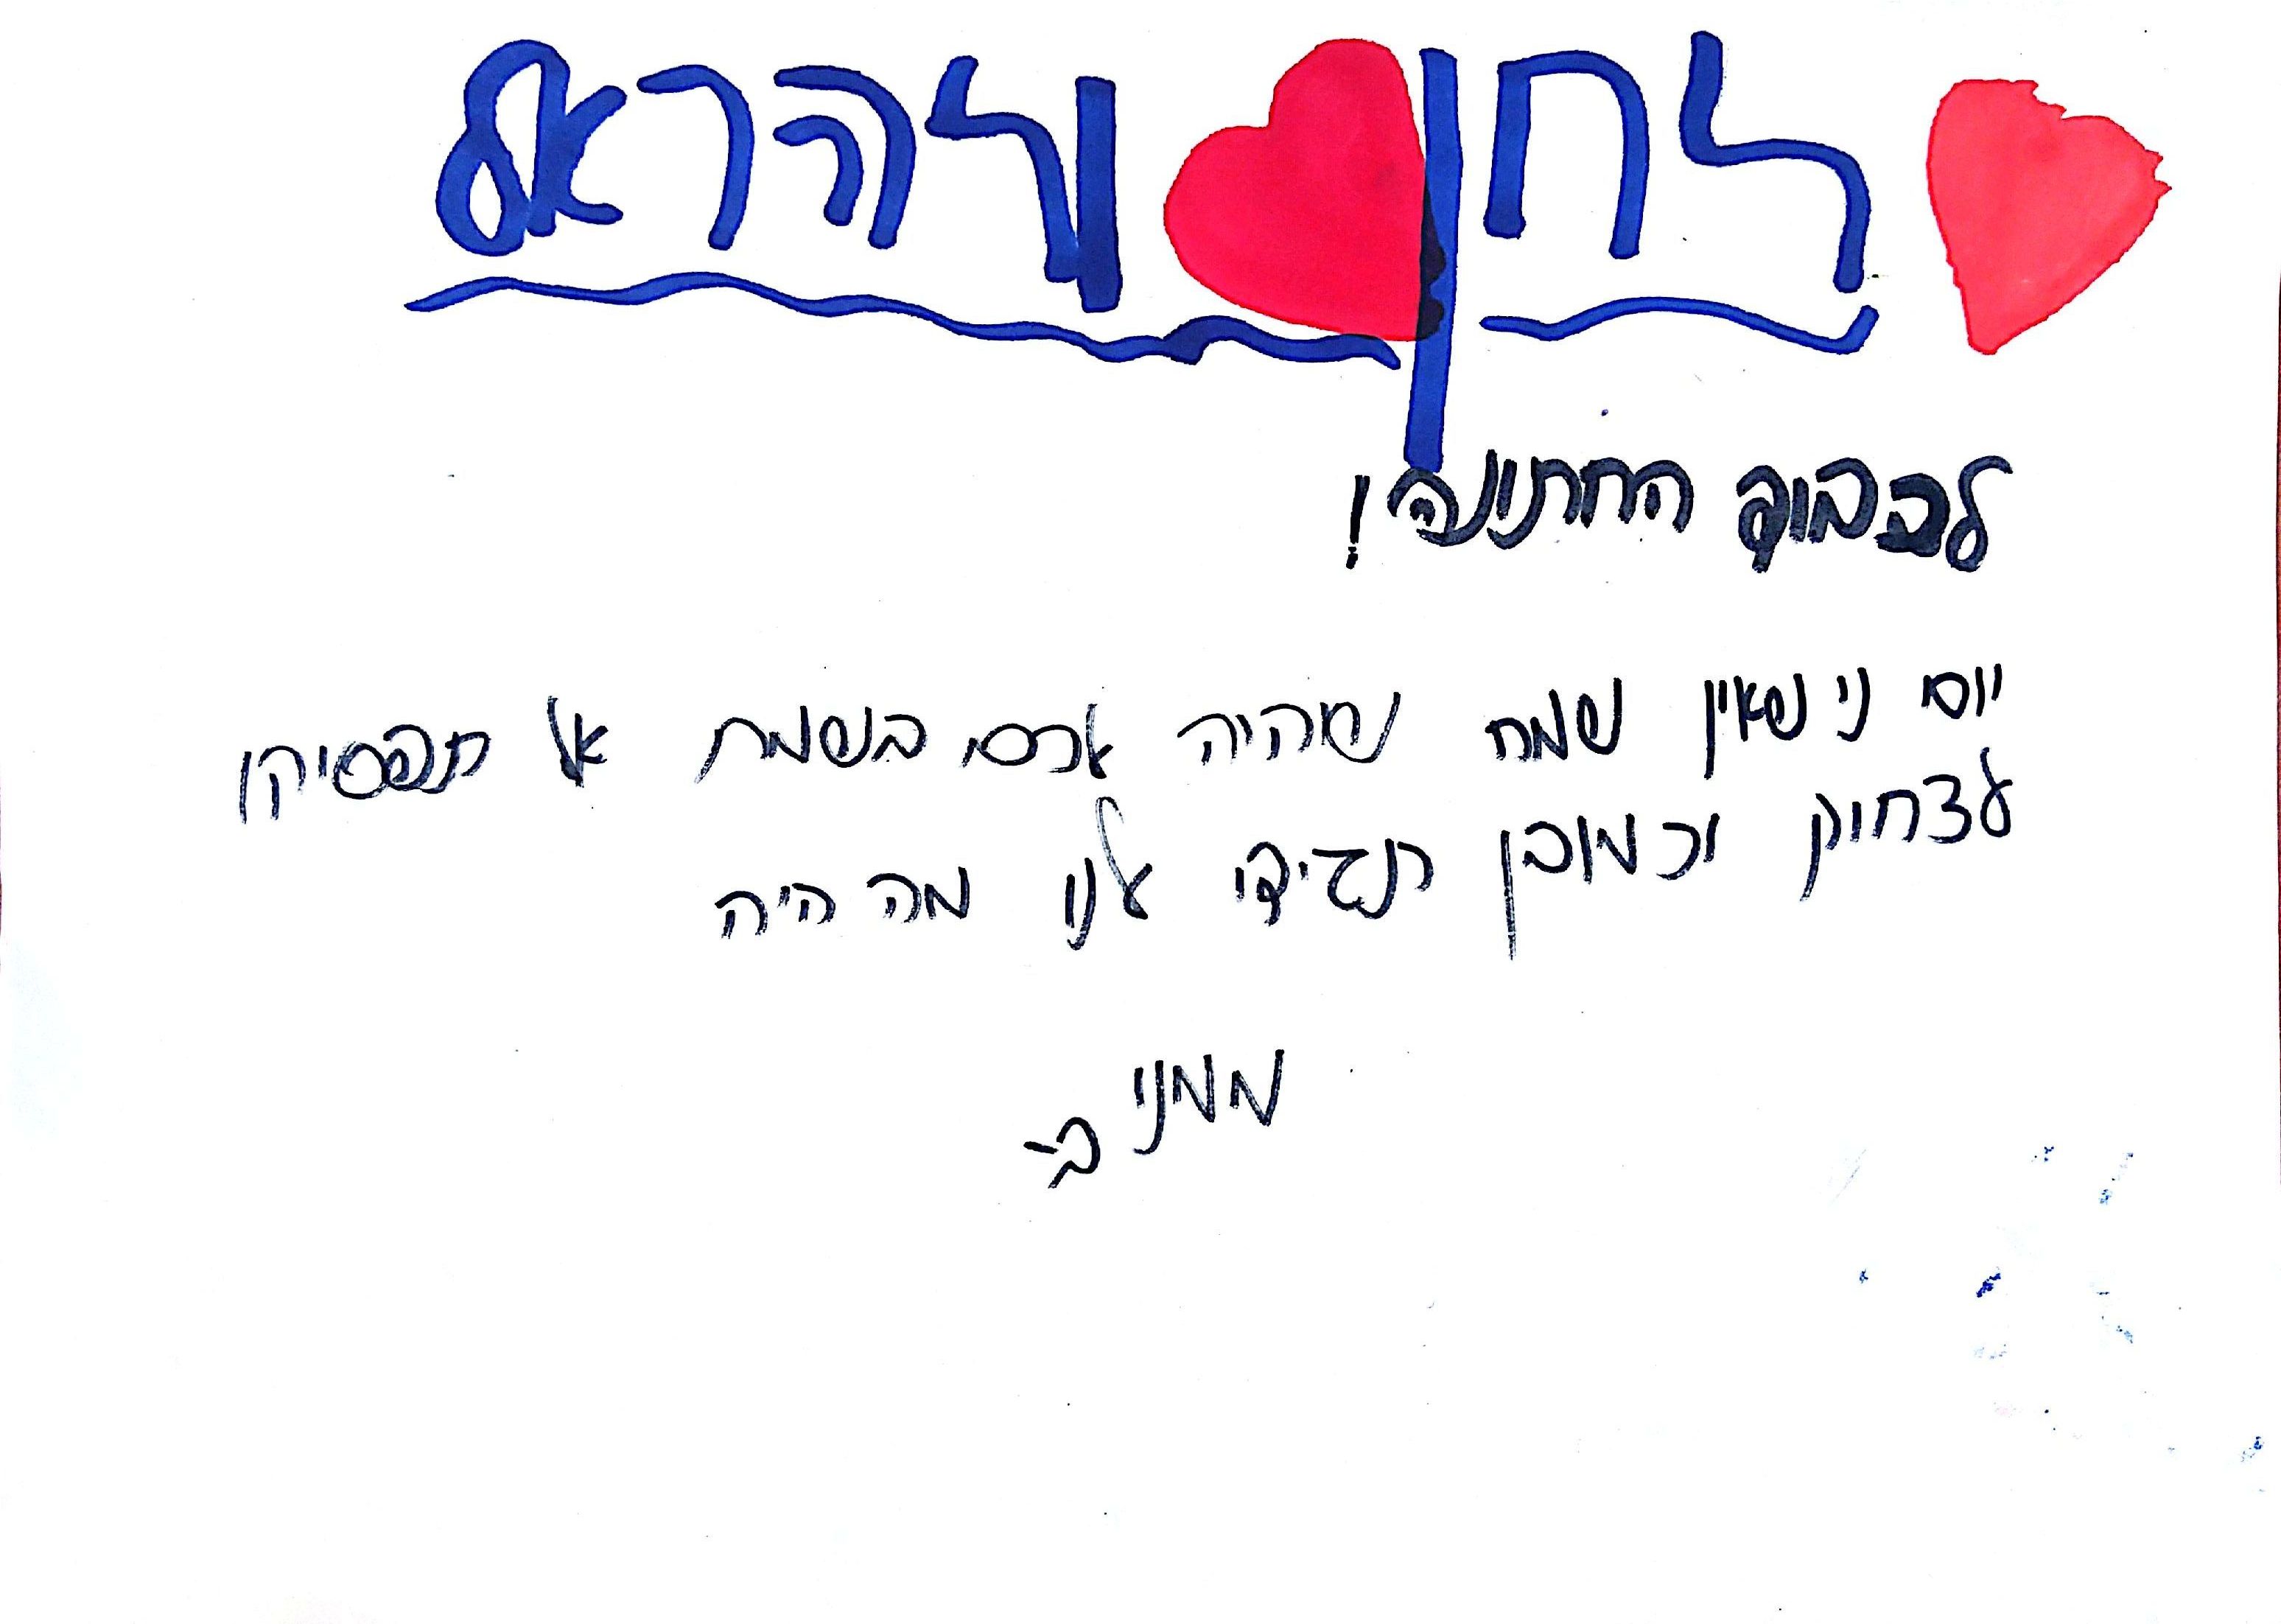 לחן ולהראל
לכבוד החתונה!
יום נישאין שמח שהיה לכם בשמח אל תפסיקו
לצחוק וכמובן תגידי לנו מה היה
ממני ב-